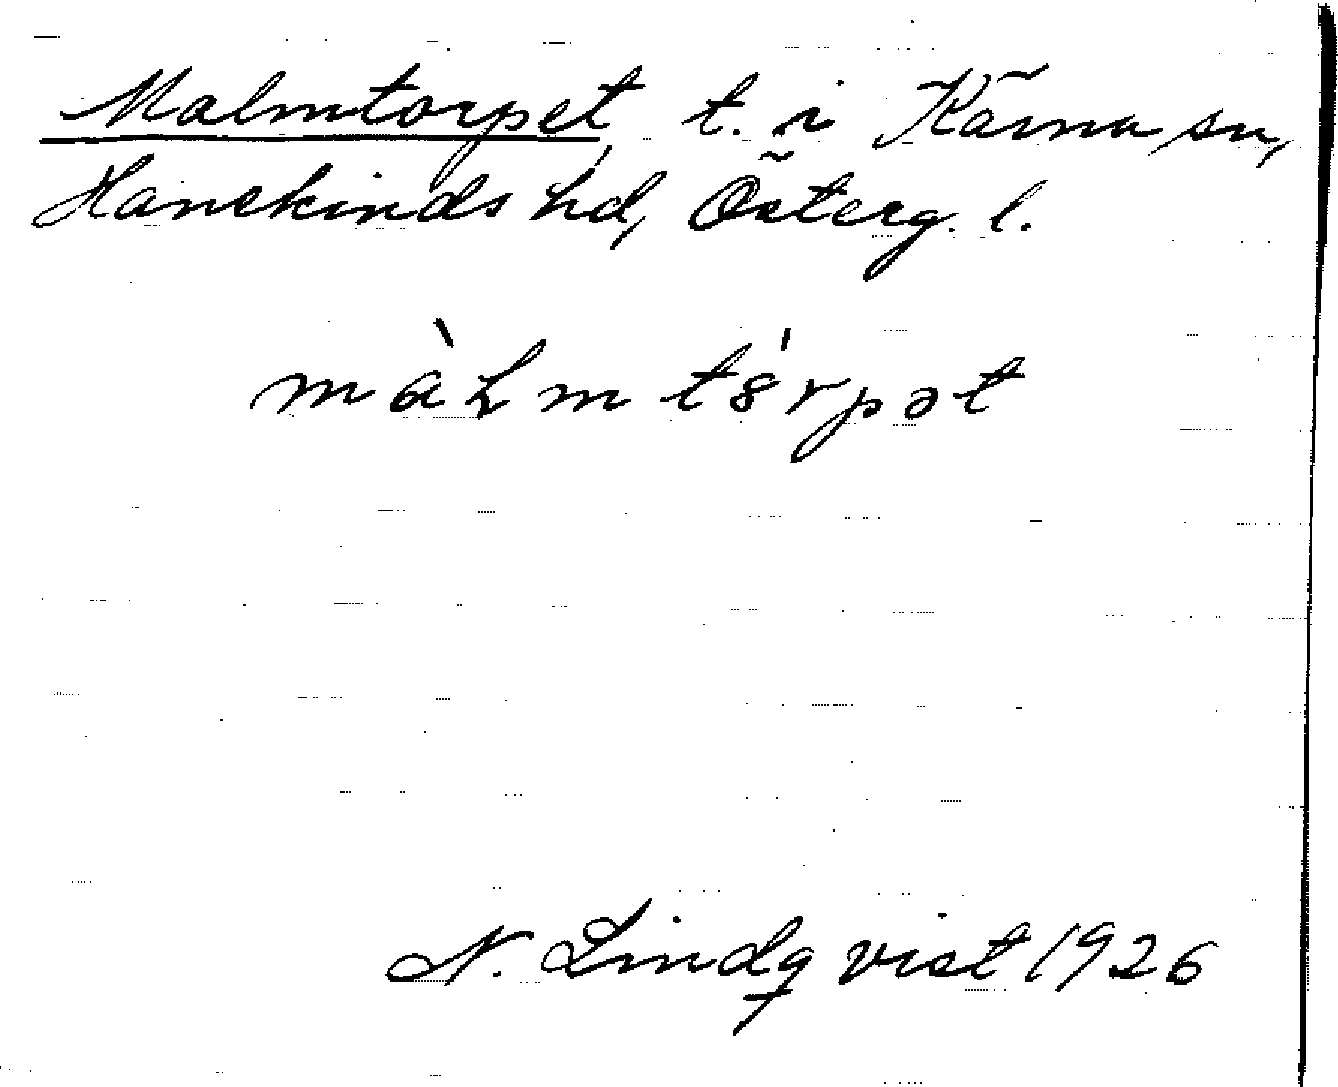 Malmtorpet, t. i Kärna sn,
Hanekinds hd, Österg. l.
màLm tȣ́rpət
N. Lindqvist 1926